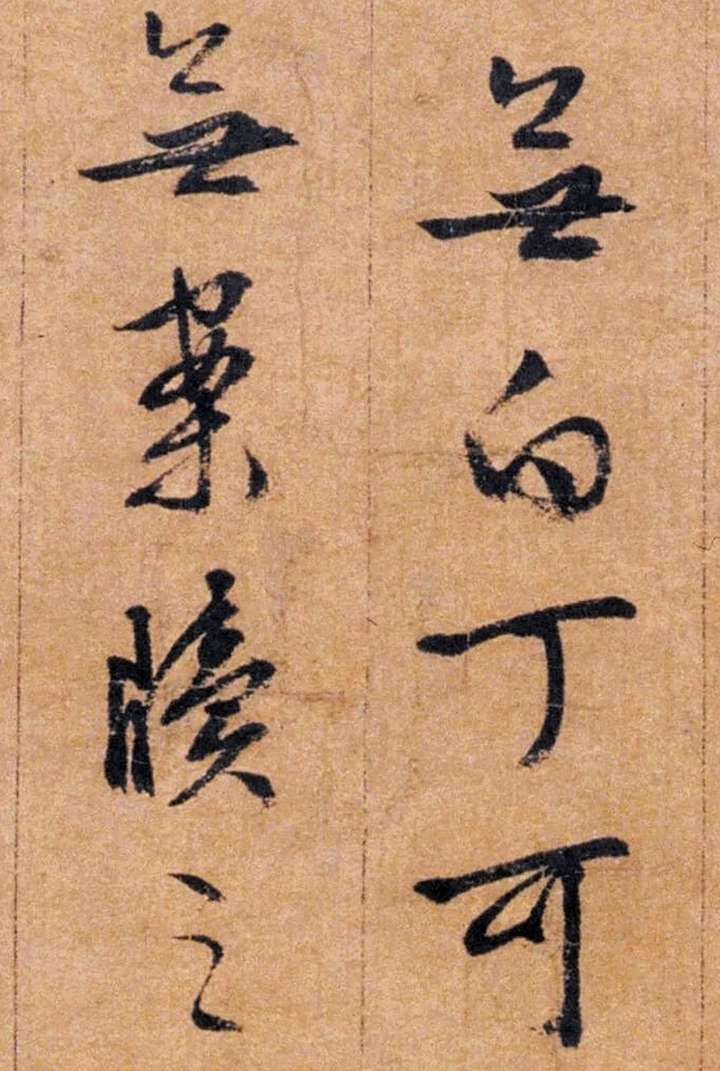 無白丁可
無案牘之